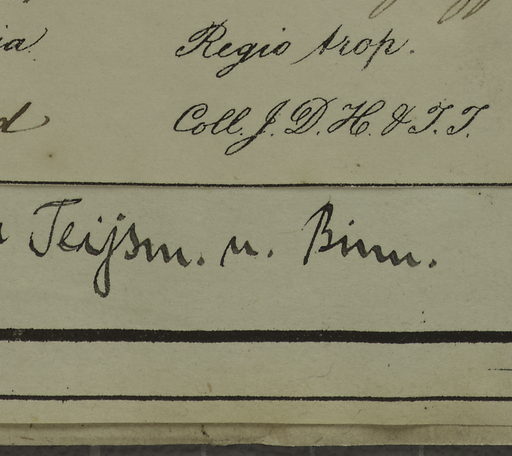 ia Regio trop.
d Coll. J. D. H. & T. T.
Teijsm. u. Binn.